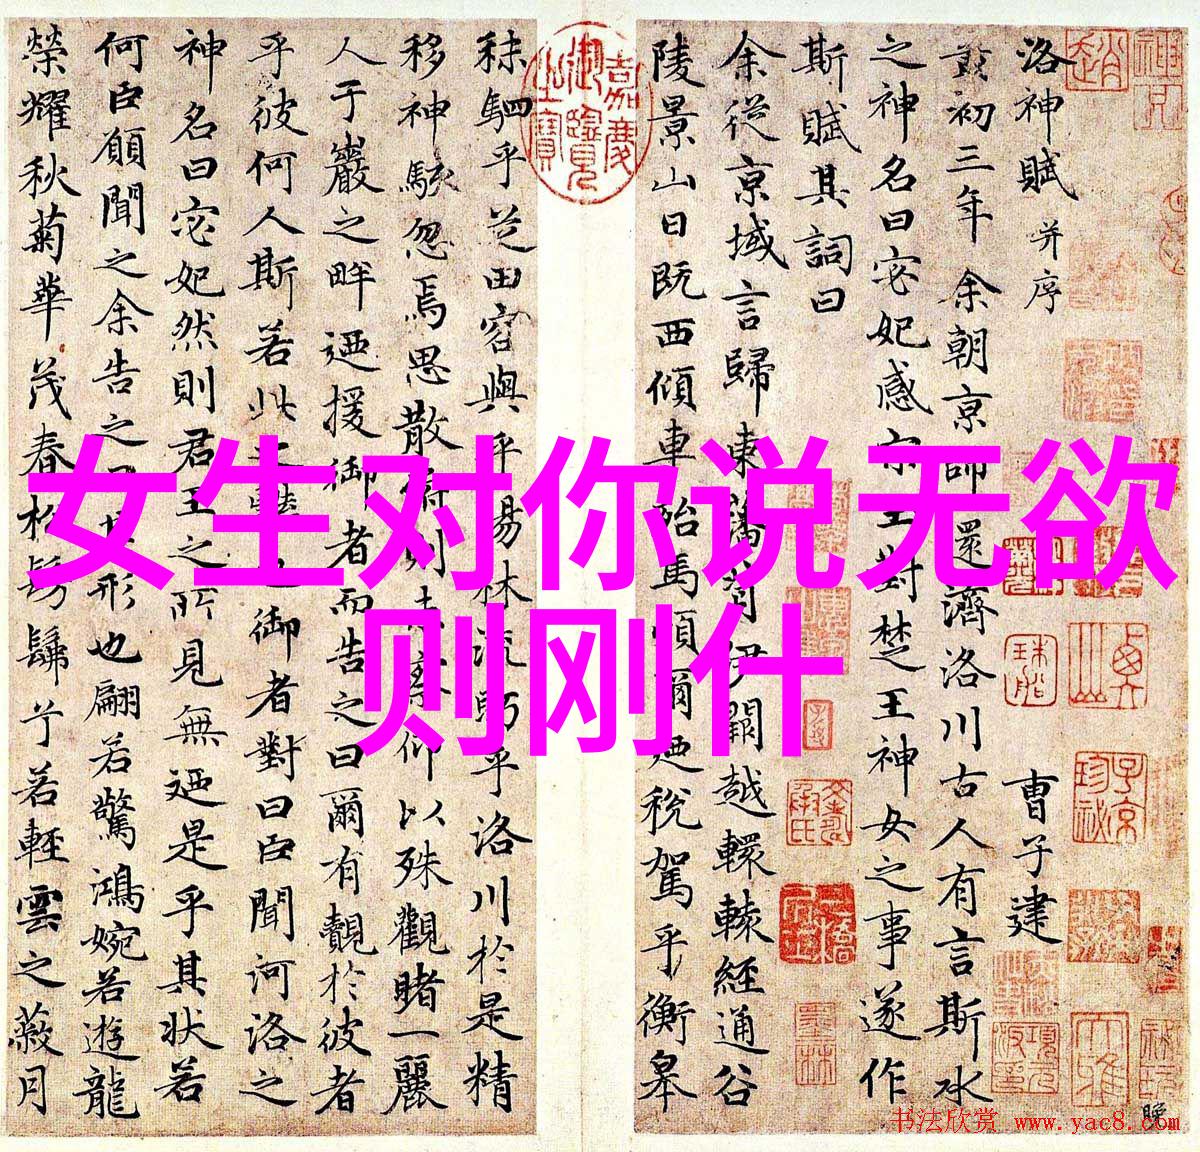 洛神賦 并序
曹子建
黃初三年余朝京師還濟洛川古人有言斯水
之神名曰宓妃感宋玉對楚王神女之事遂作
斯賦其詞曰
余從京域言歸東藩背伊闕越轘轅經通谷
陵景山日既西傾車殆馬煩爾迺稅駕乎衡皋
秣駟乎芝田容與乎楊林流眄乎洛川於是精
移神駭忽焉思散俯則未察仰以殊觀睹一麗
人于巖之畔迺援御者而告之曰爾有覿於彼者
乎彼何人斯若此之豔也御者對曰臣聞河洛之
神名曰宓妃然則君王之所見無迺是乎其狀若
何臣願聞之余告之曰其形也翩若驚鴻婉若遊龍
榮耀秋菊華茂春松髣髴兮若輕雲之蔽月
嘉慶御覽之寶
女生对你说无欲
则刚什
书法欣赏 www.yac8.com